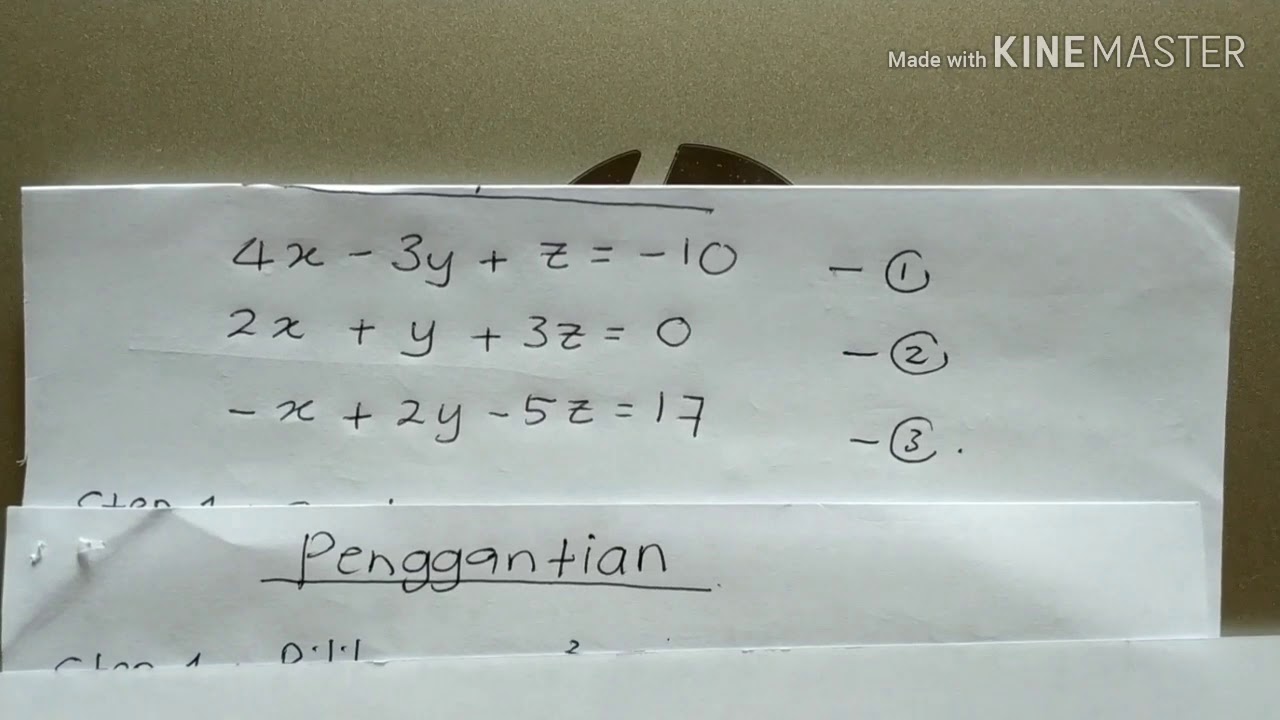 Made with KINEMASTER
4x - 3y + z = -10 - ①
2x + y + 3z = 0 - ②
-x + 2y - 5z = 17 - ③.
Penggantian